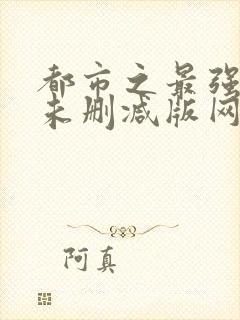 都市之最强
未删减版网
阿真